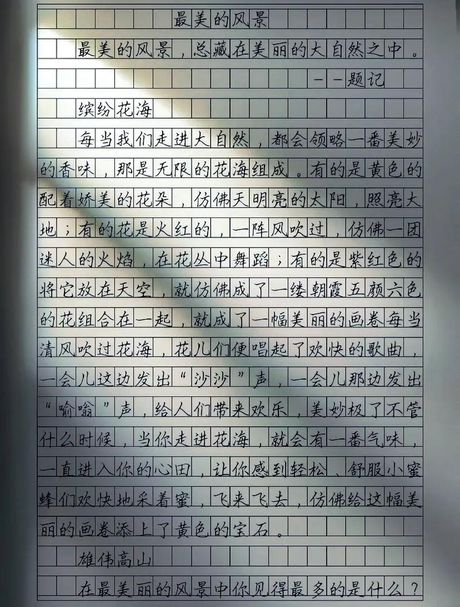 最美的风景
最美的风景，总藏在美丽的大自然之中。
--题记
缤纷花海
每当我们走进大自然，都会领略一番美妙
的香味，那是无限的花海组成。有的是黄色的
配着娇美的花朵，仿佛天明亮的太阳，照亮大
地；有的花是火红的，一阵风吹过，仿佛一团
迷人的火焰，在花丛中舞蹈；有的是紫红色的
将它放在天空，就仿佛成了一缕朝霞五颜六色
的花组合在一起，就成了一幅美丽的画卷每当
清风吹过花海，花儿们便唱起了欢快的歌曲，
一会儿这边发出“沙沙”声，一会儿那边发出
“喻嗡”声，给人们带来欢乐，美妙极了不管
什么时候，当你走进花海，就会有一番气味，
一直进入你的心田，让你感到轻松，舒服小蜜
蜂们欢快地采着蜜，飞来飞去，仿佛给这幅美
丽的画卷添上了黄色的宝石。
雄伟高山
在最美丽的风景中你见得最多的是什么？